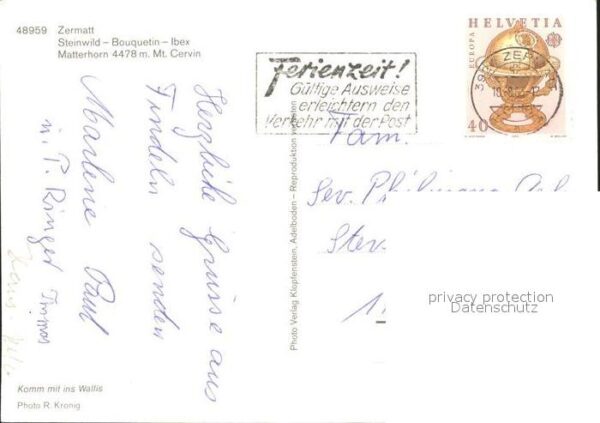 48959 Zermatt
Steinwild – Bouquetin – Ibex
Matterhorn 4478 m. Mt. Cervin
Herzliche Grüsse aus
Findeln senden
Marlene Paul
u. P. Ringer
Komm mit ins Wallis
Photo R. Kronig
Photo Verlag Klopfenstein, Adelboden – Reproduktion verboten
Ferienzeit!
Gültige Ausweise
erleichtern den
Verkehr mit der Post
HELVETIA
EUROPA
40
Fam.
privacy protection
Datenschutz